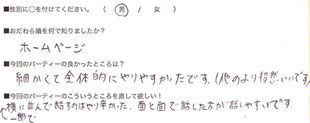 ■性別に○を付けてください。 ( 男 / 女 )
■おだわら婚を何で知りましたか?
ホームページ
■今回のパーティーの良かったところは?
細かくて全体的にやりやすかったです。(他のより がいいです)
■今回のパーティーのこういうところを直して欲しい!
横に並んで話すのはやり辛かった、面と面で話した方が話しやすいです
一部で